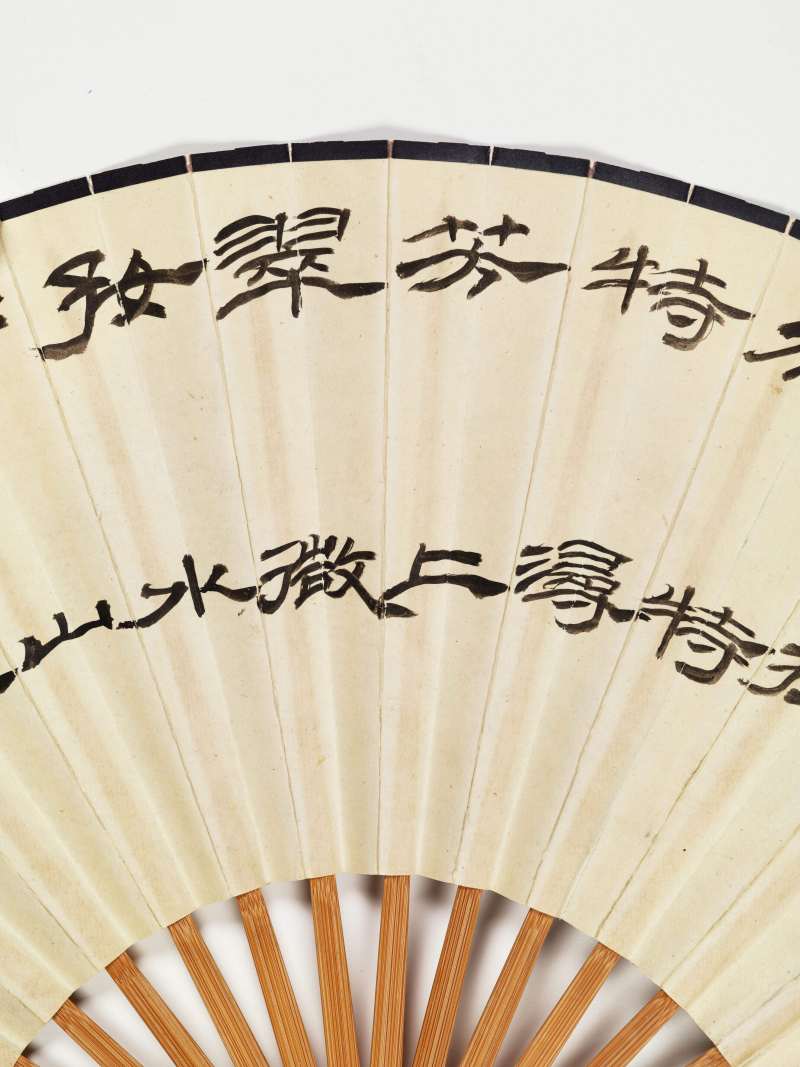 特芬翠
特潯上微水山